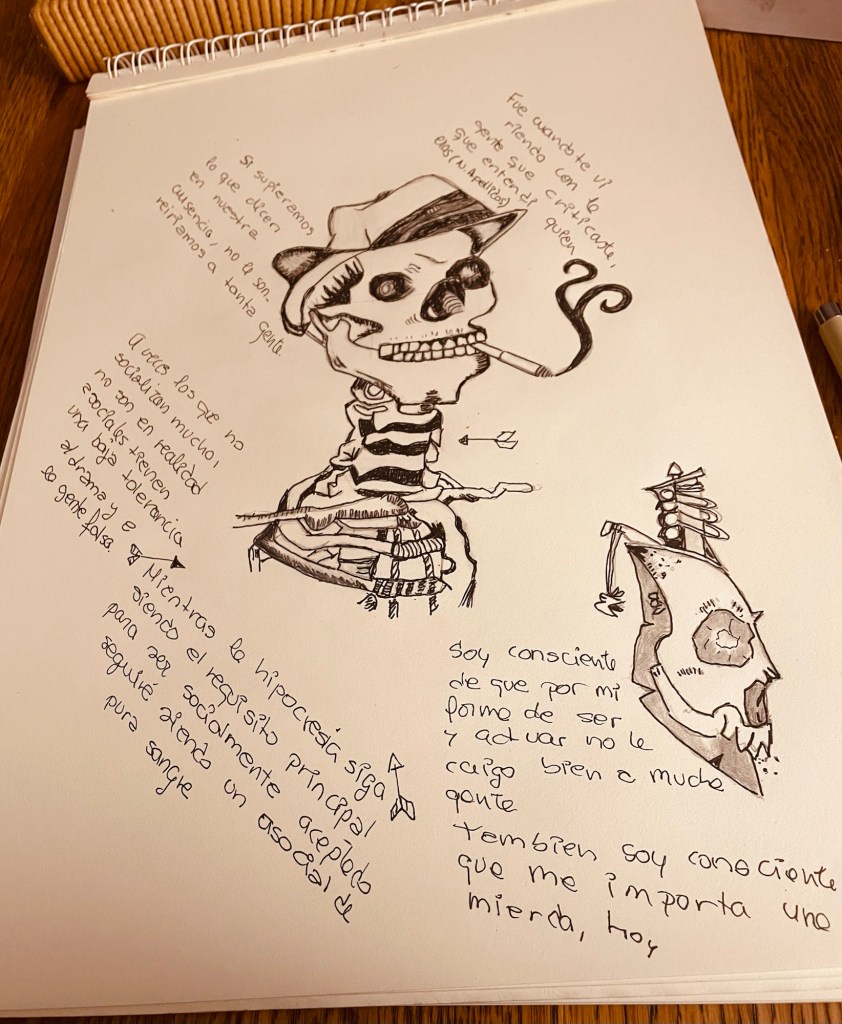 Fue cuando te vi
riendo con la
gente que criticaste,
que entendí quien
eres (N. Apellidos)
Si supieramos
lo que dicen
en nuestra
ausencia, no le son-
reiriamos a tanta gente
A veces los que no
socializan mucho,
no son en realidad
asociales tienen
una baja tolerancia
al drama y a
la gente falsa.
Mientras la hipocresia siga
siendo el requisito principal
para ser socialmente aceptado
seguiré siendo un asocial de
pura sangre
Soy consciente
de que por mi
forma de ser
y actuar no le
caigo bien a mucha
gente
tembien soy consciente
que me importa una
mierda, hoy